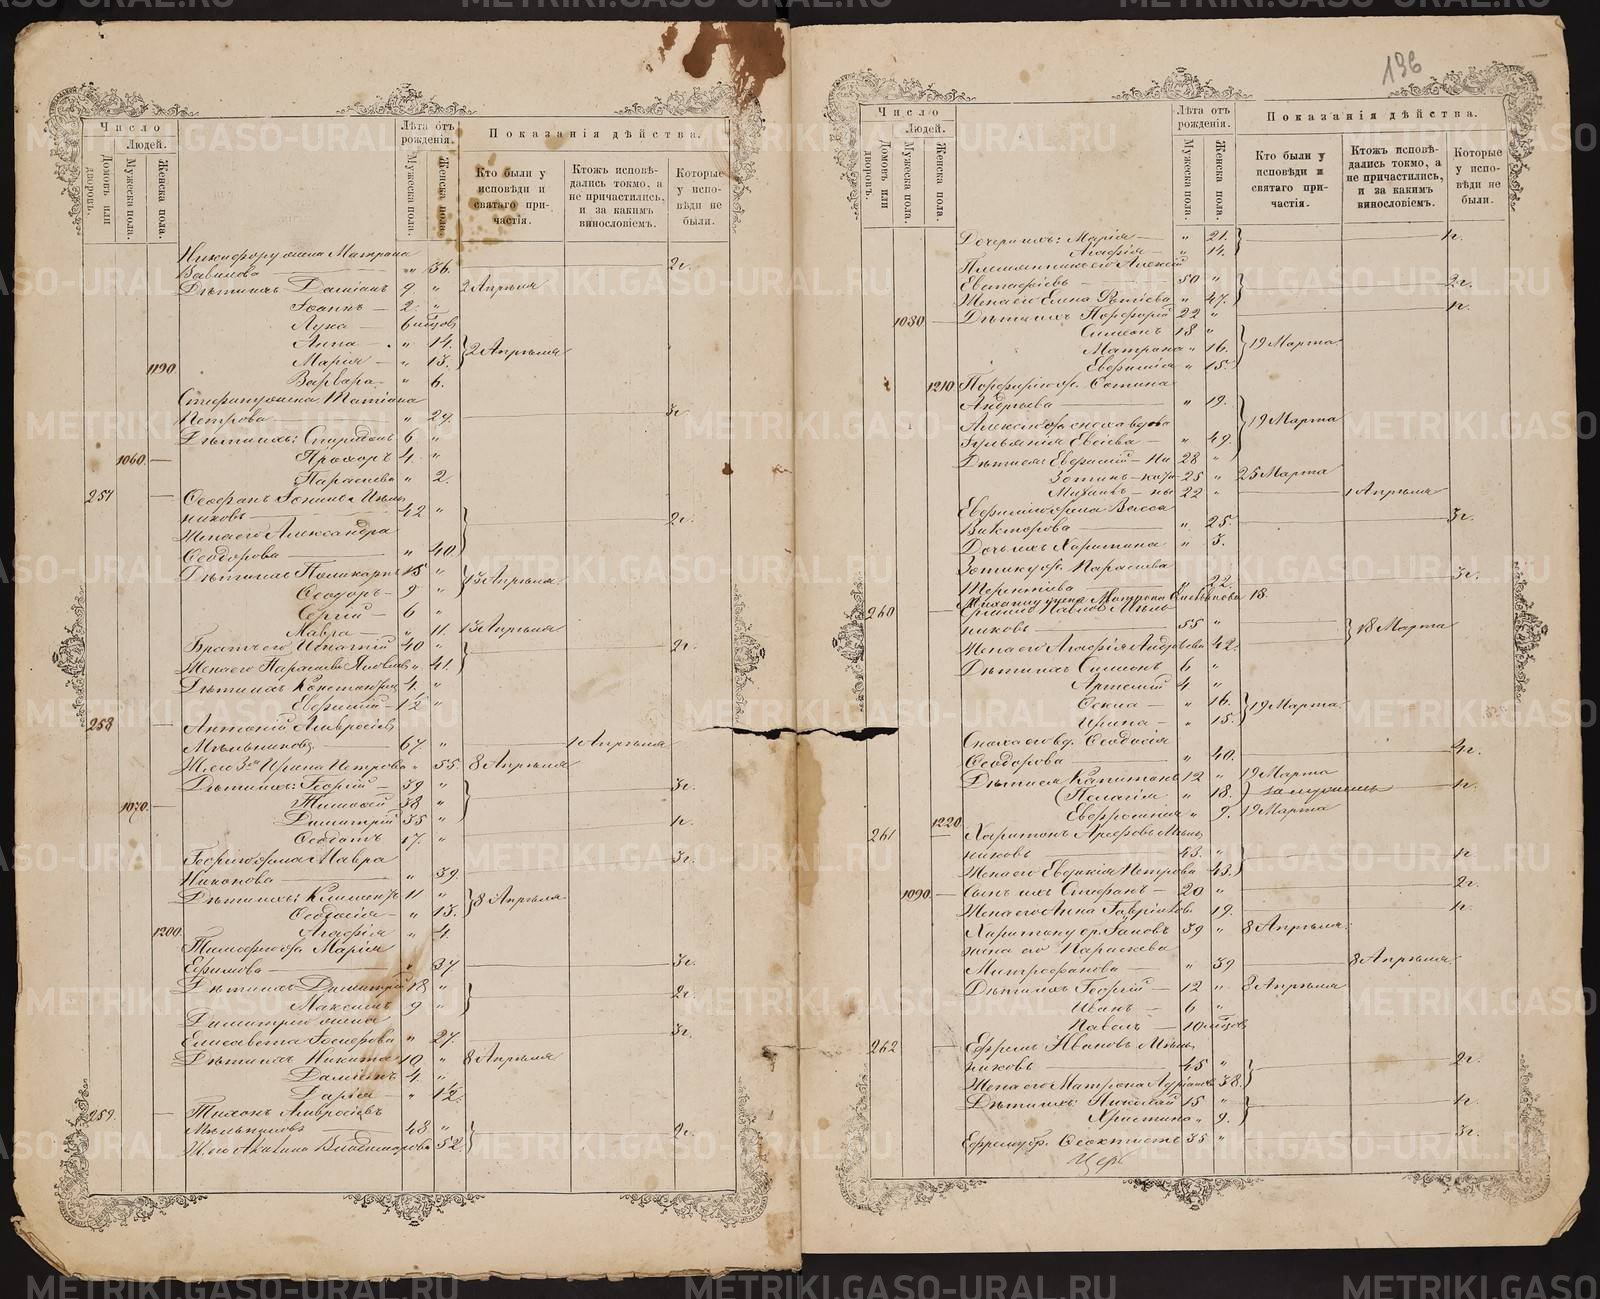 Число
Людей.
Домовъ или дворовъ.
Мужеска пола.
Женска пола.
Лѣта отъ рожденія.
Мужеска пола.
Женска пола.
Показанія дѣйства.
Кто были у исповѣди и святаго причастія.
Ктожъ исповѣдались токмо, а не причастились, и за какимъ винословіемъ.
Которые у исповѣди не были.
Никифору жена Матрона
Вавилова — " 36. 2г.
Дѣти ихъ Даміанъ 9 " 2 Апрѣля
Іоаннъ — 2. "
Лука — 6 мѣсяц.
Анна — " 14.
Марія — " 13. 2 Апрѣля
1190. Варвара — " 6.
Стефану жена Татіана
Петрова — " 29. 3г.
Дѣти ихъ: Спиридонъ 6 "
1060. — Прохоръ 4. "
Параскева " 2.
257 — Ѳеофанъ
никовъ — 42 " 2г.
Жена его Александра
Ѳеодорова — " 40.
Дѣти ихъ Поликарпъ 15 " 13 Апрѣля
Ѳеодоръ — 9 "
Сергій — 6 "
Мавра — " 11. 13 Апрѣля
Братъ его Игнатій 40 " 2г.
Жена его Параскева " 41
Дѣти ихъ Константинъ 4. "
Евфимій 1/2 "
258 — Антоній Амвросіевъ
Мѣльниковъ — 67 " 1 Апрѣля
Ж. его Ирина Петрова " 55. 8 Апрѣля
Дѣти ихъ: Георгій — 39 " 3г.
1070. — Тимофей 38 "
Димитрій 35 "
Ѳеодотъ 17. " 1г.
Георгію жена Мавра
Никонова — " 39. 3г.
Дѣти ихъ: 11 " 8 Апрѣля
Ѳеодосія — " 13.
1200. Агафія " 4.
Тимофею ж. Марія
Ефимова — " 37 3г.
Дѣти ихъ Димитрій 18 " 2г.
Максимъ 9 "
Димитрію жена
Елисавета " 27. 3г.
Дѣти ихъ Никита 10 " 8 Апрѣля
Даміанъ 4. "
Дарія — " 1/2
259. — Тихонъ Амвросіевъ
Мѣльниковъ — 48 " 2г.
Ж. его Акилина Владимирова 52
196
Число
Людей.
Домовъ или дворовъ.
Мужеска пола.
Женска пола.
Лѣта отъ рожденія.
Мужеска пола.
Женска пола.
Показанія дѣйства.
Кто были у исповѣди и святаго причастія.
Ктожъ исповѣдались токмо, а не причастились, и за какимъ винословіемъ.
Которые у исповѣди не были.
Дочери ихъ: Марія — " 21. 1г.
Агафія — " 14.
Племянникъ его Алексій
Евстафіевъ — 50 " 2г.
Жена его Елена " 47.
1080 — Дѣти ихъ Порфирій 22 " 1г.
Симеонъ 18 "
Матрона " 16. 19 Марта
Евфимія " 15.
1210 Порфирію ж.
Андрѣева — " 19.
Алексію сноха вдова 19 Марта
Іуліанія Евсіева — " 49.
Дѣти ея Евфимій — 28 "
Зотикъ — 25 " 25 Марта
Михаилъ — 22 " 1 Апрѣля
Евфимію жена Васса
Викторова — " 25. 3г.
Дочь ихъ Харитина " 3.
Зотику ж. Параскева
Терентіева " 22. 3г.
Михаилу жена Матрона 18.
260 —
никовъ — 55 " 18 Марта
Жена его Агафія Андрѣева 42.
Дѣти ихъ Симеонъ 6 "
Артемій 4 "
" 16. 19 Марта
Ирина — " 15.
Сноха его вд. Ѳеодосія
Ѳеодорова — " 40. 4г.
Дѣти ея Капитонъ 12 " 19 Марта
Пелагія " 18. замужемъ 1г.
1220 Евфросинія " 9. 19 Марта
261 — Харитонъ
никовъ 43. " 1г.
Жена его Евдокія Петрова 43.
1090 — Сынъ ихъ Стефанъ — 20 " 2г.
Жена его Анна Гаврилов. 19. 1г.
Харитону бр. Іаковъ 39 " 8 Апрѣля.
жена его Параскева
Митрофанова — " 39 8 Апрѣля.
Дѣти ихъ Георгій — 12 " 8 Апрѣля
Иванъ — 6 "
Павелъ — 10 мѣсяц.
262 — Ефремъ Ивановъ Мѣль
никовъ — 45 " 2г.
Жена его Матрона 38.
Дѣти ихъ: Николай 15 " 1г.
Христина " 9.
Ефрему бр. Ѳеоктистъ 35 " 3г.